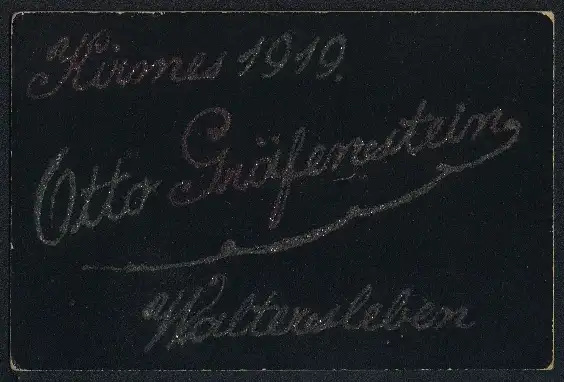 Kirmes 1919.
Otto Gräfenstein
Waltersleben